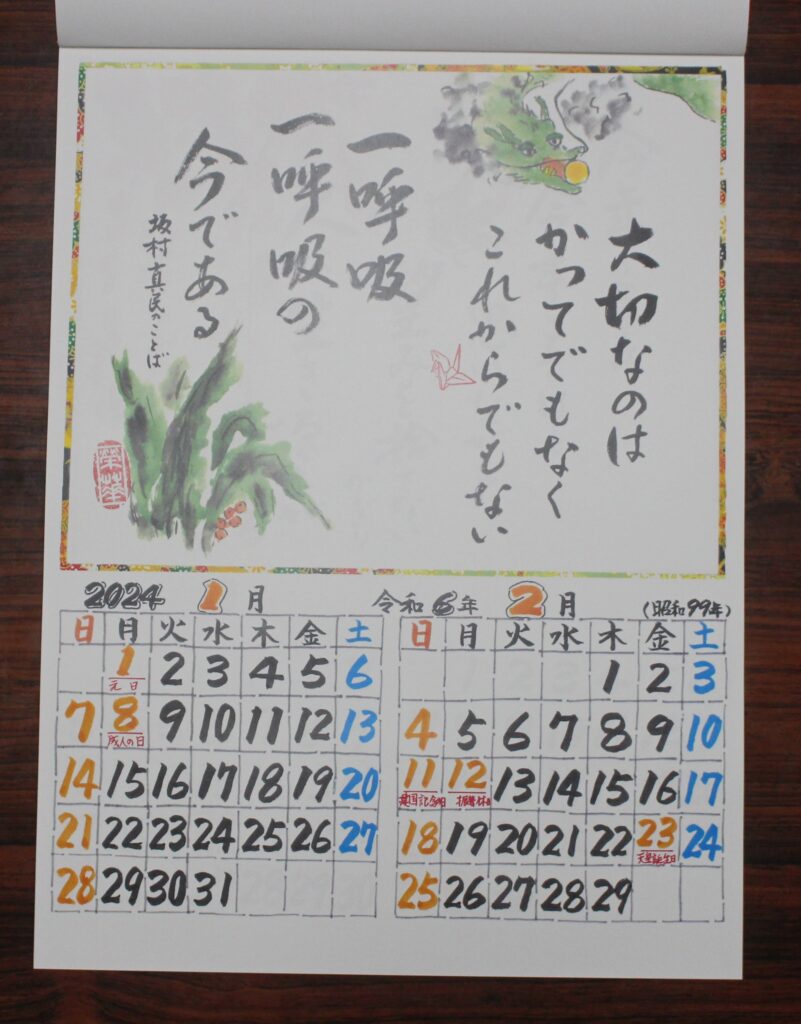 大切なのは
かつてでもなく
これからでもない
一呼吸
一呼吸の
今である
坂村真民のことば
2024 1月 令和6年 2月 (昭和99年)
日 月 火 水 木 金 土
1 2 3 4 5 6
元日
7 8 9 10 11 12 13
成人の日
14 15 16 17 18 19 20
21 22 23 24 25 26 27
28 29 30 31
日 月 火 水 木 金 土
1 2 3
4 5 6 7 8 9 10
11 12 13 14 15 16 17
建国記念日 振替休日
18 19 20 21 22 23 24
天皇誕生日
25 26 27 28 29